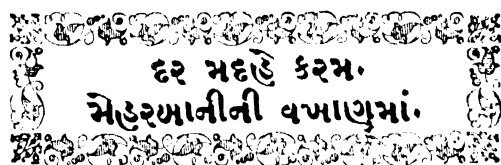 દર મદહે કરમ.
મેહરબાનીની વખાણમાં.